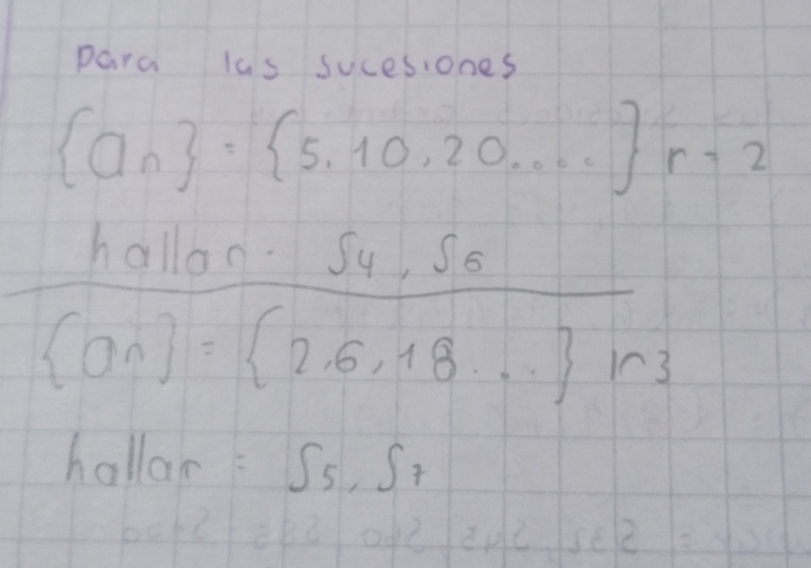 para las sucesiones
{an} = {5, 10, 20....} r = 2
hallar. S4, S6
{an} = {2, 6, 18...} r 3
hallar = S5, S7